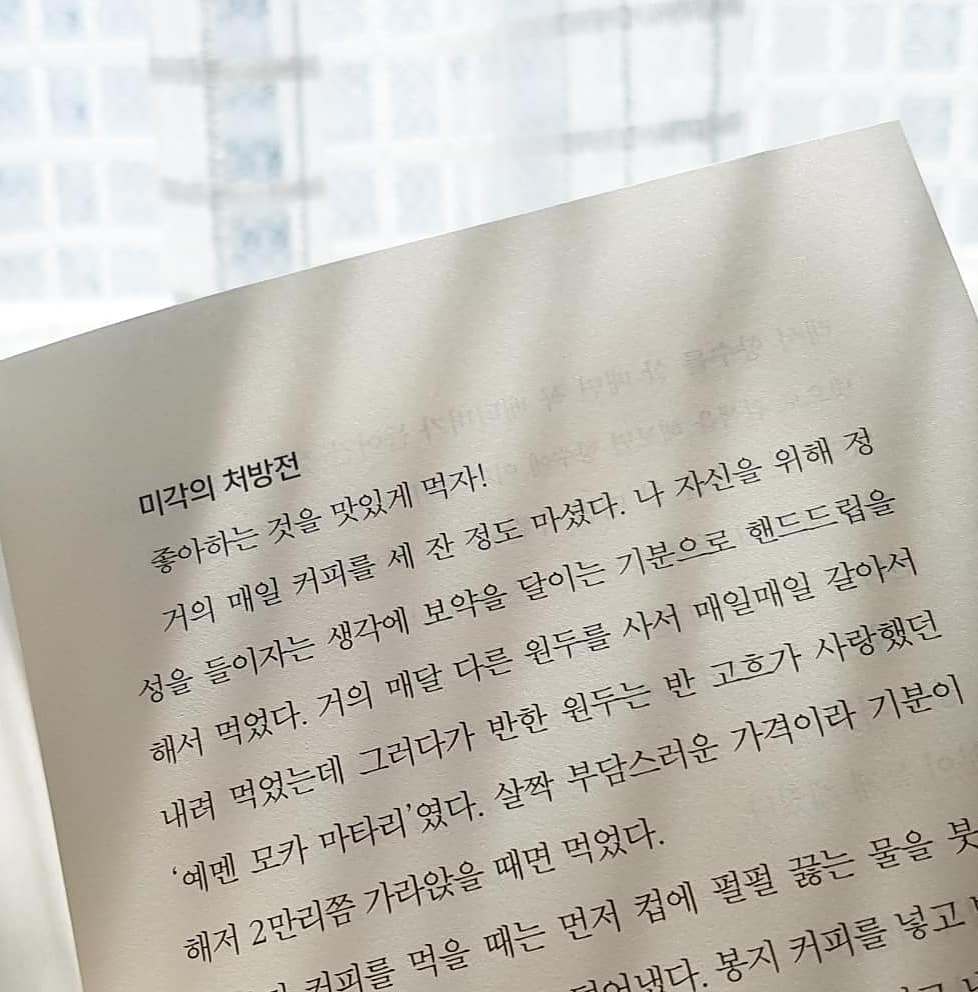 미각의 처방전
좋아하는 것을 맛있게 먹자!
거의 매일 커피를 세 잔 정도 마셨다. 나 자신을 위해 정
성을 들이자는 생각에 보약을 달이는 기분으로 핸드드립을
해서 먹었다. 거의 매달 다른 원두를 사서 매일매일 갈아서
내려 먹었는데 그러다가 반한 원두는 반 고흐가 사랑했던
‘예멘 모카 마타리’였다. 살짝 부담스러운 가격이라 기분이
해저 2만리쯤 가라앉을 때면 먹었다.
커피를 먹을 때는 먼저 컵에 펄펄 끓는 물을 붓
봉지 커피를 넣고